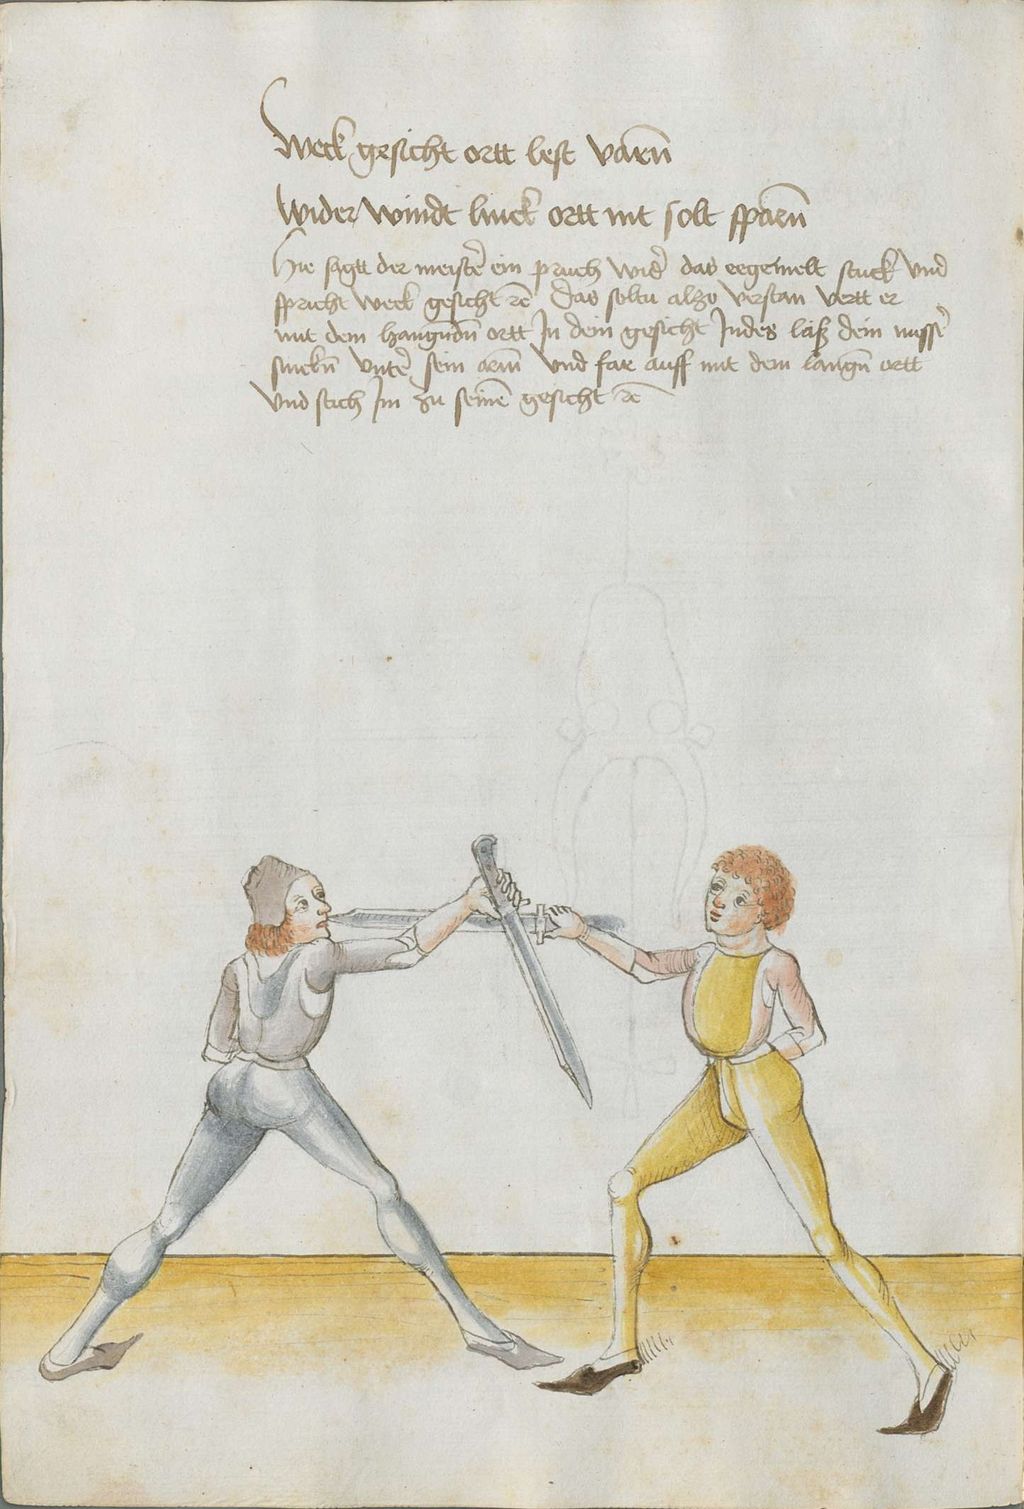 Weck gesicht ortt lest varn̄
Wider windt linck ortt nit solt sparn̄
Hie sagtt der meister̄ ein pruch wid̄ das eegemelt stuck vnd
spricht weck gesicht ꝛc̄ Das soltu alzo verstan vertt er
mit dem hangndn̄ ortt In dein gesicht Indes laß dein messer̄
sinckn̄ vnter̄ sein arm̄ vnd far auff mit dem langn̄ ortt
vnd stich Im zu seinē gesicht ꝛc̄